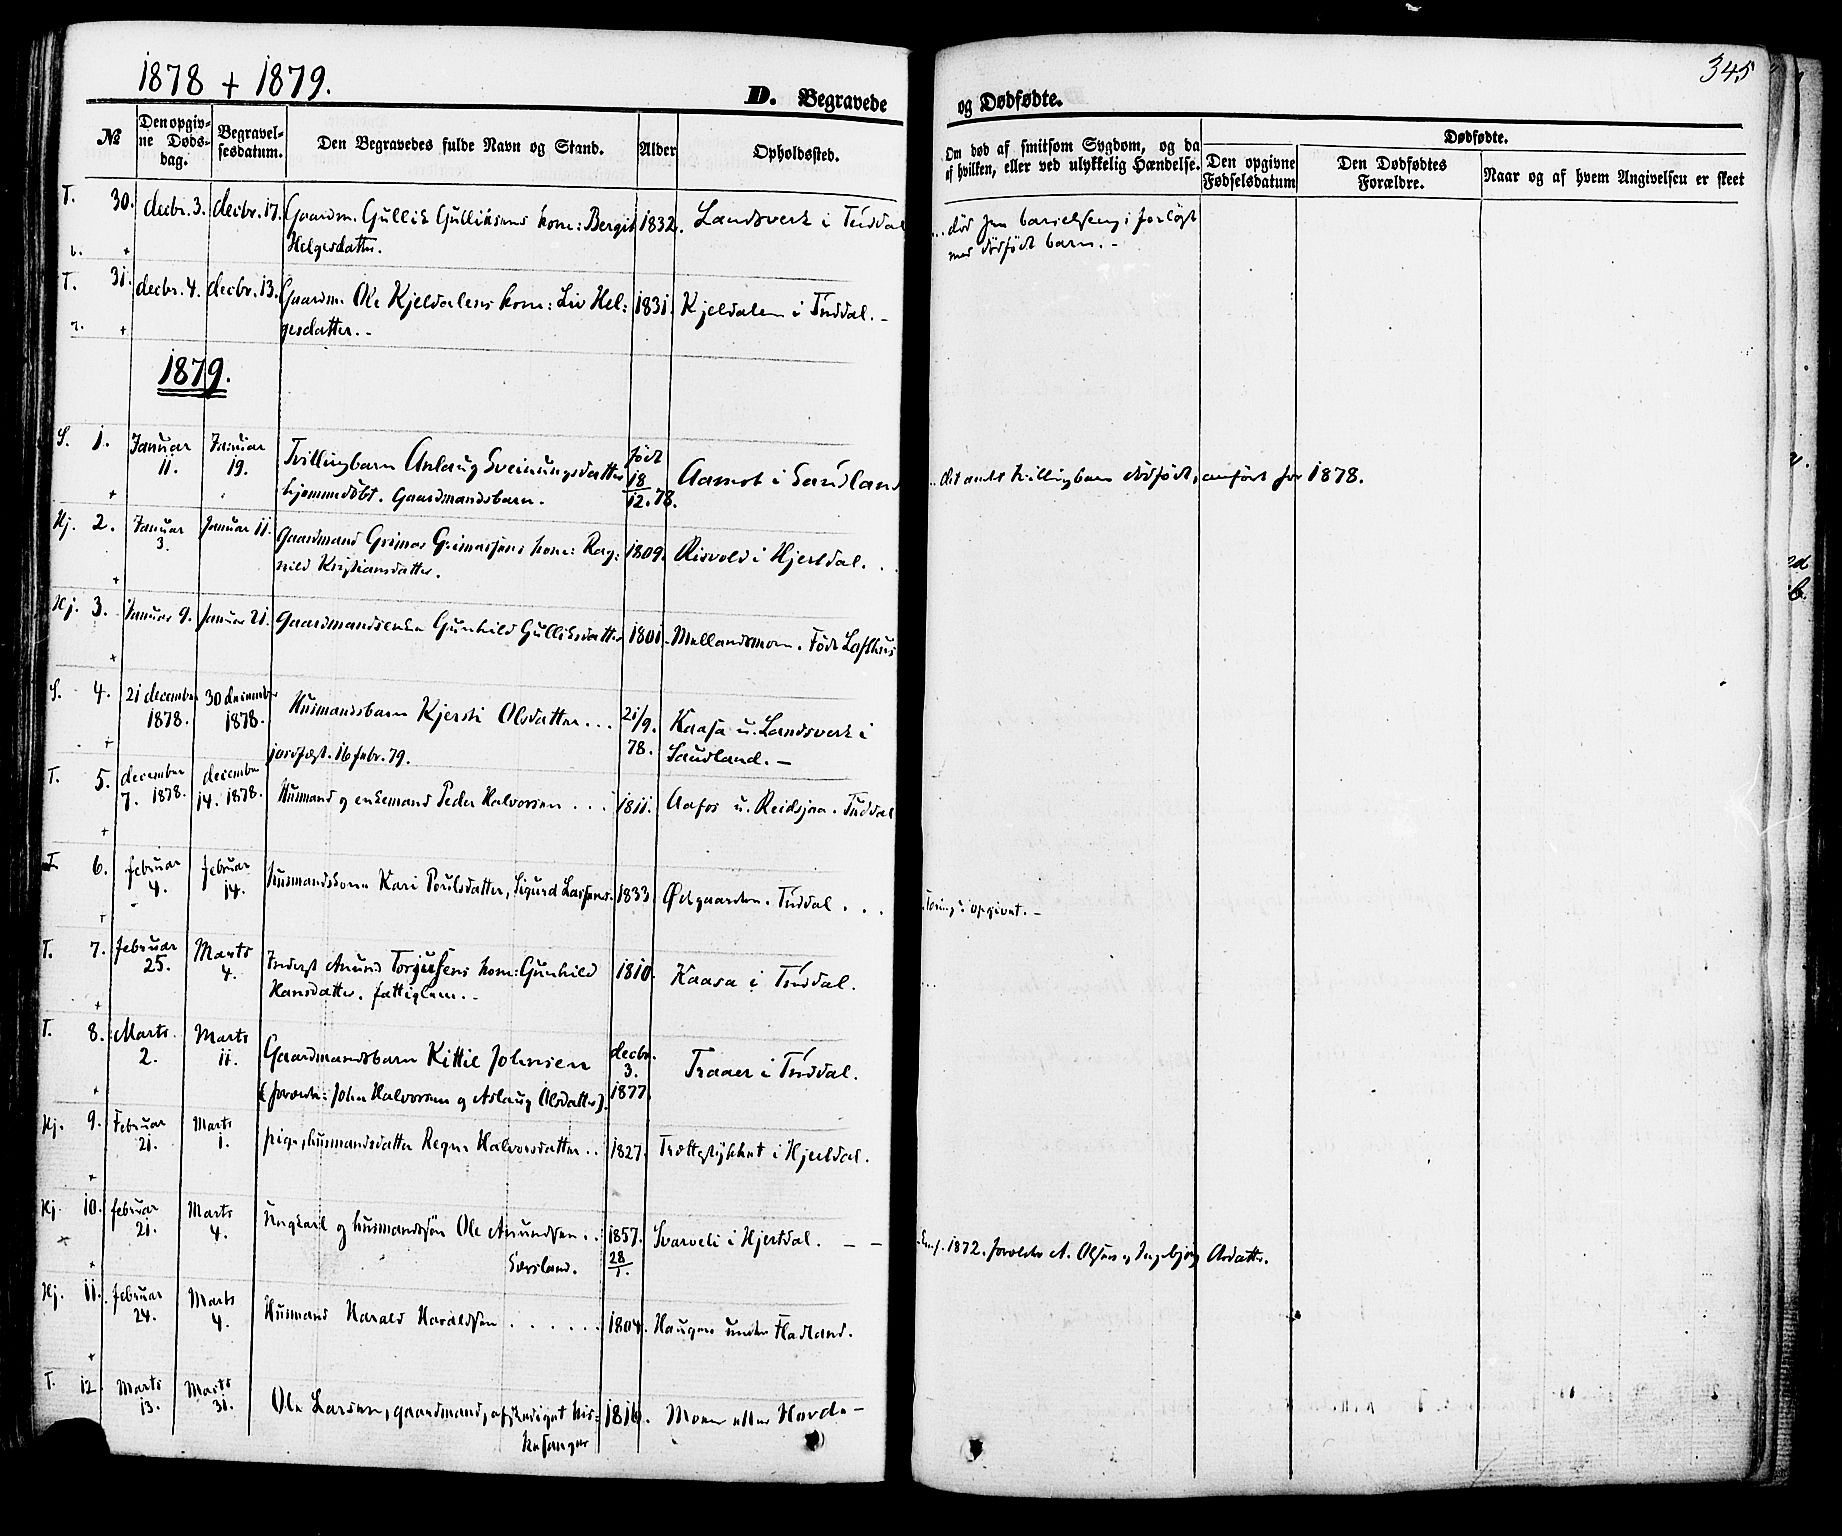 1878 + 1879.
345
D. Begravede og Dødfødte.
№
Den opgiv-
ne Døds-
dag.
Begravel-
sesdatum.
Den Begravedes fulde Navn og Stand.
Alder
Opholdssted.
Om død af smitsom Sygdom, og da
af hvilken, eller ved ulykkelig Hændelse.
Dødfødte.
Den opgivne
Fødselsdatum
Den Dødfødtes
Forældre.
Naar og af hvem Angivelsen er skeet
T. 30. decbr. 3. decbr. 17. Gaardm. Gullik Gulliksens kone: Bergit 1832. Landsverk i Tuddal
Helgesdatter.
død
med dødfødt barn. -
T. 31. decbr. 4. decbr. 13. Gaardm. Ole Kjeldalens kone: Liv Hel- 1831. Kjeldalen i Tuddal. -
gesdatter. -
1879.
S. 1. Januar 11. Januar 19. Tvillingbarn Aslaug Sveinungsdatter født 18/12.78. Aamot i Sauland
hjemmedøbt. Gaardmandsbarn.
det andet tvillingbarn dødfødt, anført for 1878.
Hj. 2. Januar 3. Januar 11. Gaardmand Grimar Grimarsens kone: Rag- 1809. Risvold i Hjertdal.
nild Kristiansdatter.
Hj. 3. Januar 9. Januar 21. Gaardmandsenke Gunhild Gulliksdatter 1801. Mellandsmoen. Født Lofthus
S. 4. 21 december 1878. 30 december 1878. Husmandsbarn Kjersti Olsdatter . . . 21/9. 78. Kaasa u. Landsverk i
jordfæst. 16 febr. 79. Saudland. -
T. 5. december 7. 1878. december 14. 1878. Husmand og enkemand Peder Halvorsen . . . 1811. Aafos u. Reidsjaa. Tuddal
T. 6. februar 4. februar 14. Husmandskone Kari Poulsdatter, Sigurd Larsens. 1833. Ødegaarden. Tuddal . . .
Tæring: opgivet. -
T. 7. februar 25. Marts 4. Inderst Anund Torjusens kone: Gunhild 1810. Kaasa i Tuddal.
Hansdatter. fattiglem. -
T. 8. Marts 2. Marts 11. Gaardmandsbarn Kittil Johnsen decbr. 3. 1877. Traaen i Tuddal.
(forældr: John Halvorsen og Aslaug Olsdatter).
Hj. 9. Februar 21. Marts 1. pige, husmandsdatter Regne Halvorsdatter . . 1827. Trættestykket i Hjertdal.
Hj. 10. februar 21. Marts 4. Ungkarl og husmandssøn Ole Anundsen . . 1857. 28/1. Svarveli i Hjertdal. - -
Sørsland.
Konf. 1872. forældre A. Olsen og Ingebjørg Asdatter.
Hj. 11. februar 24. Marts 4. Husmand Harald Haraldsen . . . . . . 1804. Haugen under Fladland.
T. 12 Marts 13. Marts 31. Ole Larsen, gaardmand, afskediget kir- 1816. Moen eller Hovde -
kesanger